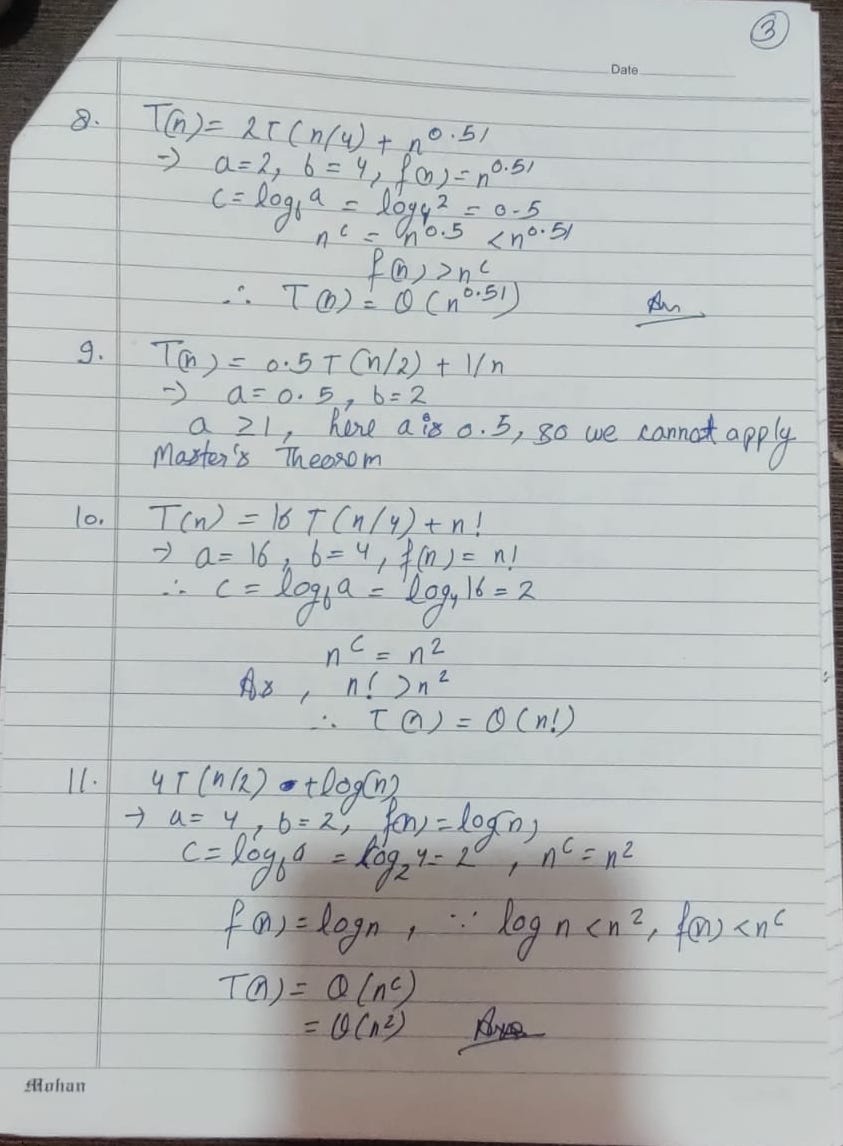 3
Date
8. T(n) = 2T(n/4) + n^0.51
→ a=2, b=4, f(n)=n^0.51
c = log_b a = log_4 2 = 0.5
n^c = n^0.5 < n^0.51
f(n) > n^c
∴ T(n) = θ(n^0.51) An
9. T(n) = 0.5T(n/2) + 1/n
→ a=0.5, b=2
a ≥1, here a is 0.5, so we cannot apply
Master's Theorom
10. T(n) = 16 T(n/4) + n!
→ a=16, b=4, f(n)=n!
∴ c = log_b a = log_4 16 = 2
n^c = n^2
As, n! > n^2
∴ T(n) = θ(n!)
11. 4T(n/2) + log(n)
→ a=4, b=2, f(n)=log(n)
c = log_b a = log_2 4 = 2, n^c = n^2
f(n) = log n, ∵ log n < n^2, f(n) < n^c
T(n) = θ(n^c)
= θ(n^2) Ans
Mohan